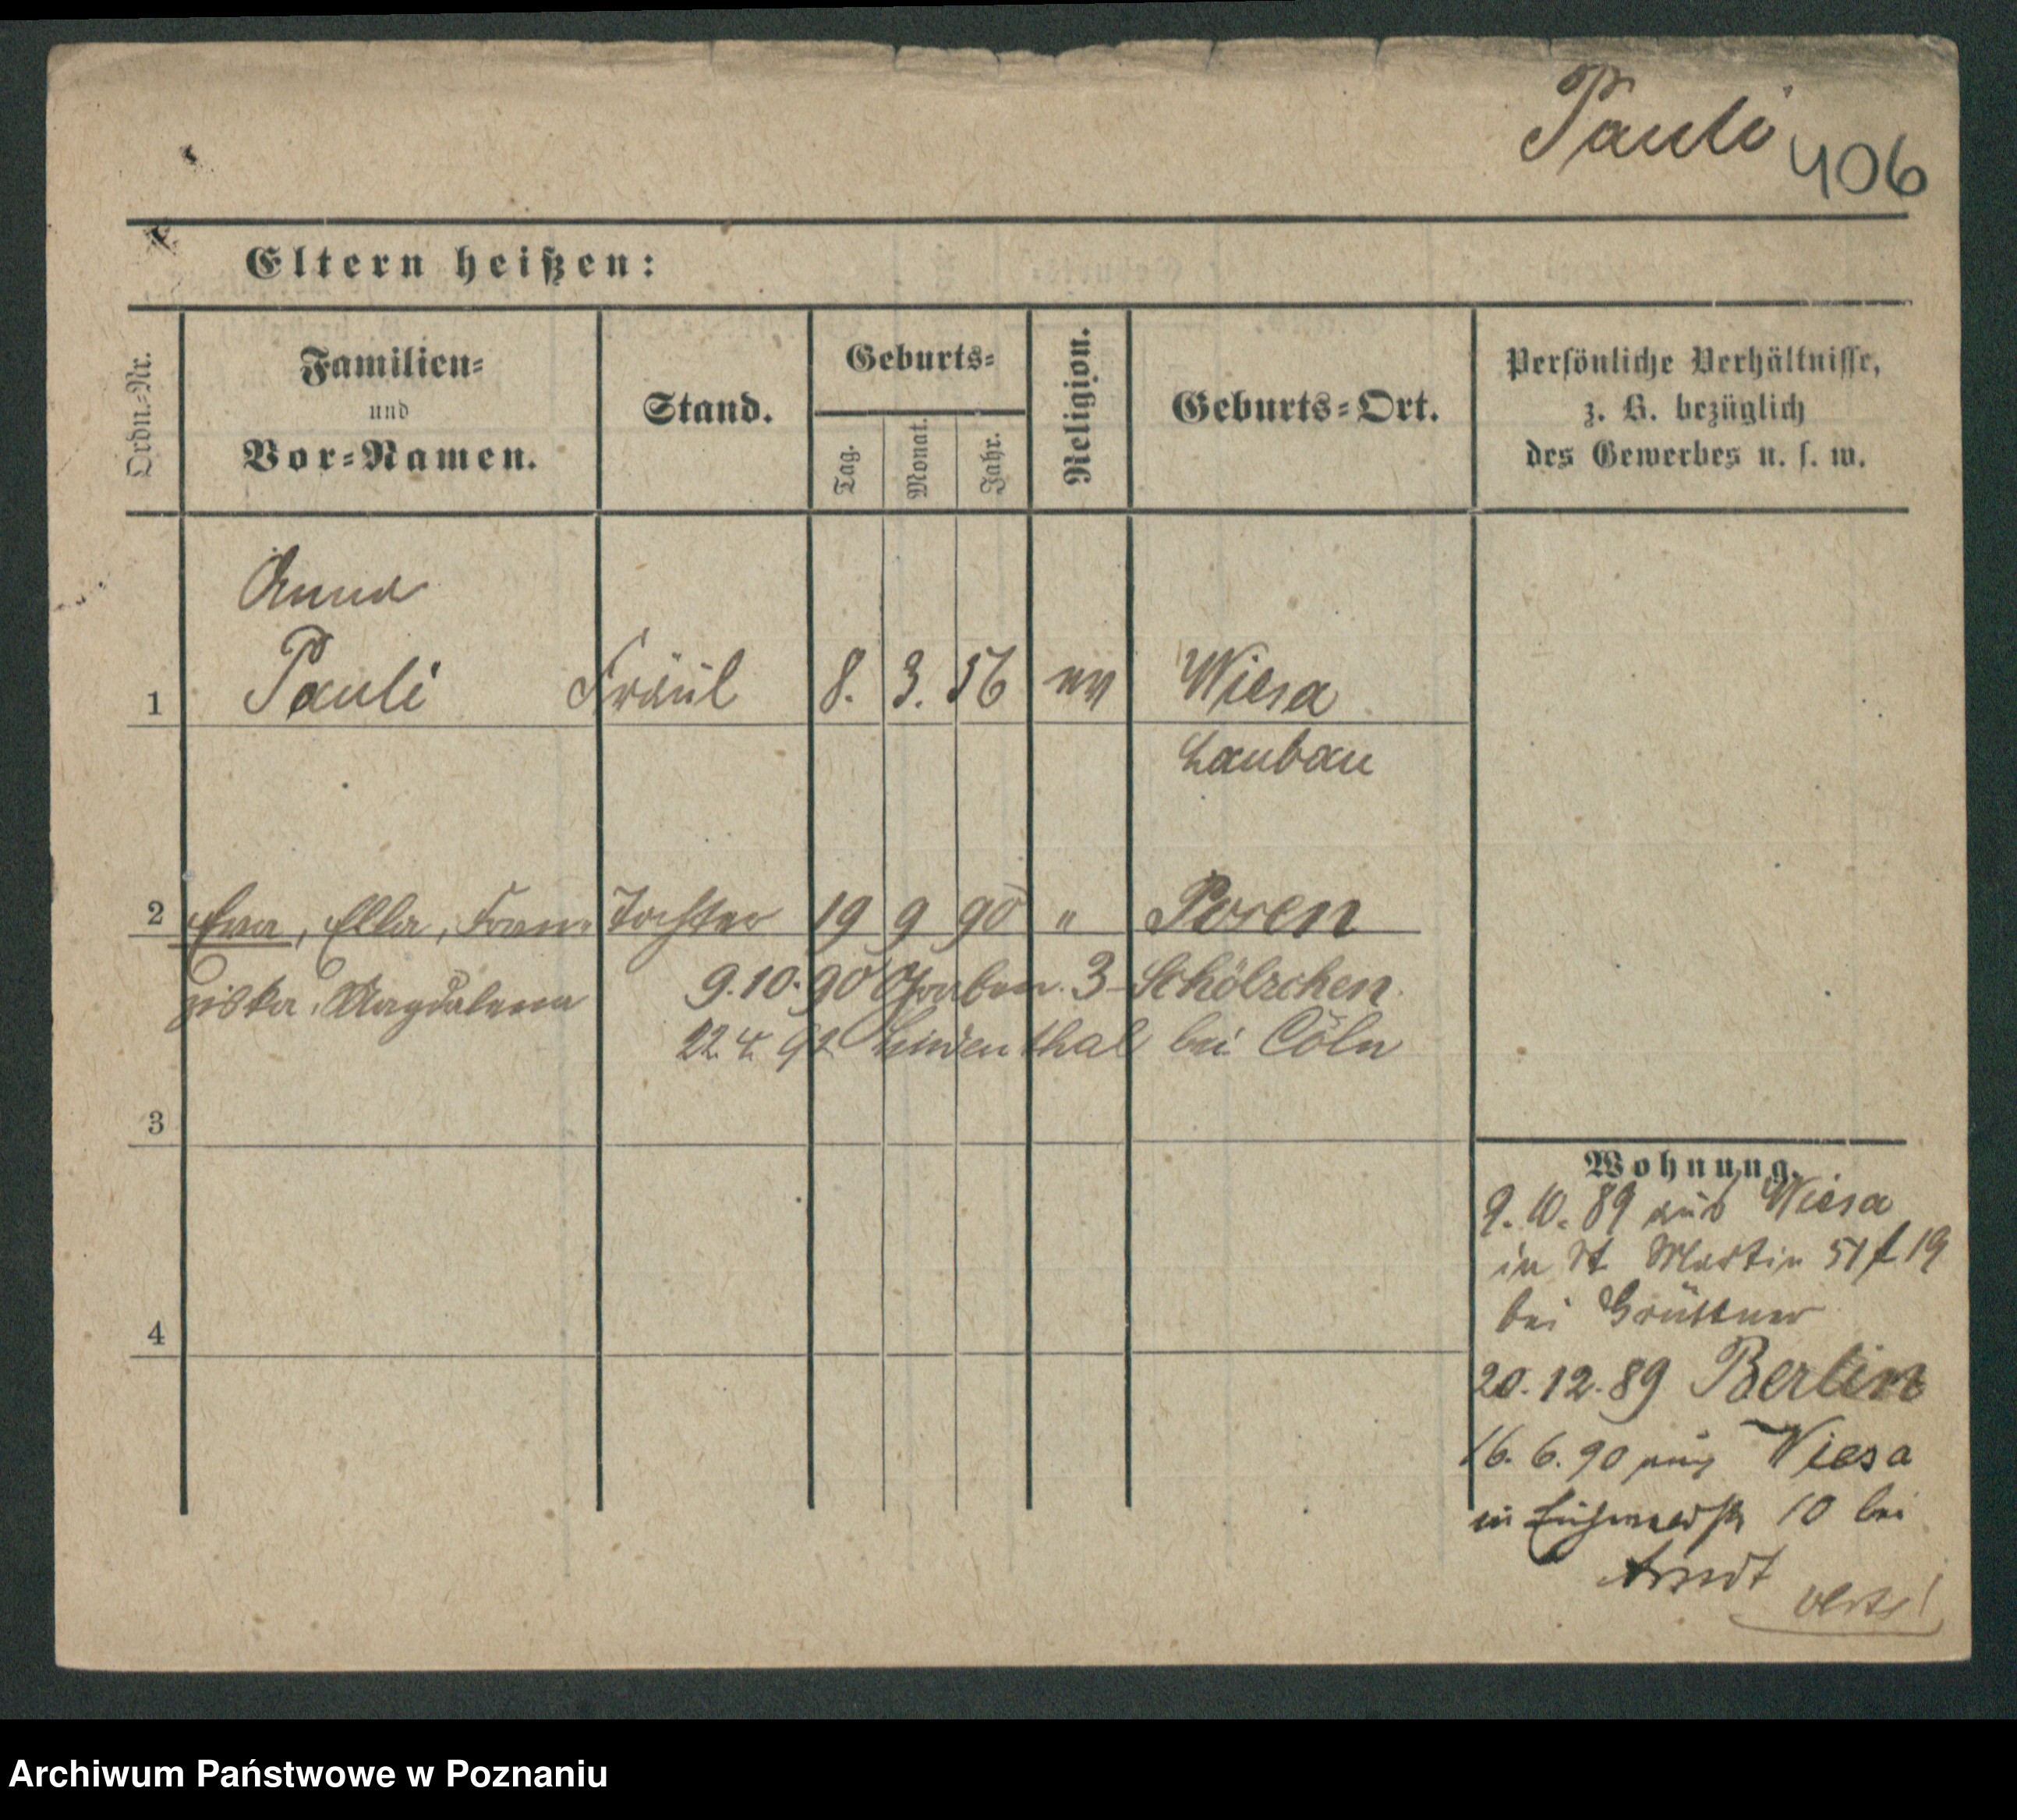 Pauli
406
Eltern heißen:
Ordn.-Nr.
Familien-
und
Vor-Namen.
Stand.
Geburts-
Tag.
Monat.
Jahr.
Religion.
Geburts-Ort.
Persönliche Verhältnisse,
z. B. bezüglich
des Gewerbes u. s. w.
Anna
1 Pauli Fräul 8. 3. 56 ev Wiesa
Lauban
2 Eva, Ella, Fran- Tochter 19 9 90 " Posen
ziska, Magdalena
9.10.90 Graben 3 - Schölzchen.
22 4. 92 Lindenthal bei Cöln
3
4
Wohnung.
9.10.89 aus Wiesa
in St Martin 51 f 19
bei Grüttner
20.12.89 Berlin
16.6.90 aus Wiesa
in 10 bei
Arndt
Archiwum Państwowe w Poznaniu